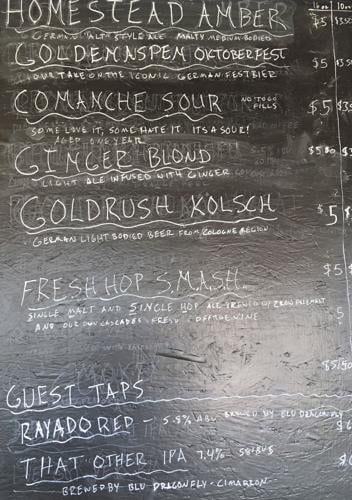 16oz 10oz
HOMESTEAD AMBER $5 $3.50
GERMAN ALT STYLE ALE MALTY MEDIUM BODIED
GOLDEN ASPEN OKTOBERFEST $5
OUR TAKE ON THE ICONIC GERMAN FESTBIER
COMANCHE SOUR NO TOGO FILLS $5
SOME LOVE IT, SOME HATE IT. ITS A SOUR!
AGED ONE YEAR
GINGER BLOND
LIGHT ALE INFUSED WITH GINGER
GOLDRUSH KOLSCH $5
GERMAN LIGHT BODIED BEER FROM COLOGNE REGION
FRESH HOP S.M.A.S.H. $5
SINGLE MALT AND SINGLE HOP ALE BREWED W/
AND OUR OWN CASCADES FRESH OFF THE VINE
GUEST TAPS
RAYADO RED 5.8% ABV BREWED BY BLU DRAGONFLY
THAT OTHER IPA 7.4% 58 IBUS
BREWED BY BLU DRAGONFLY - CIMARRON